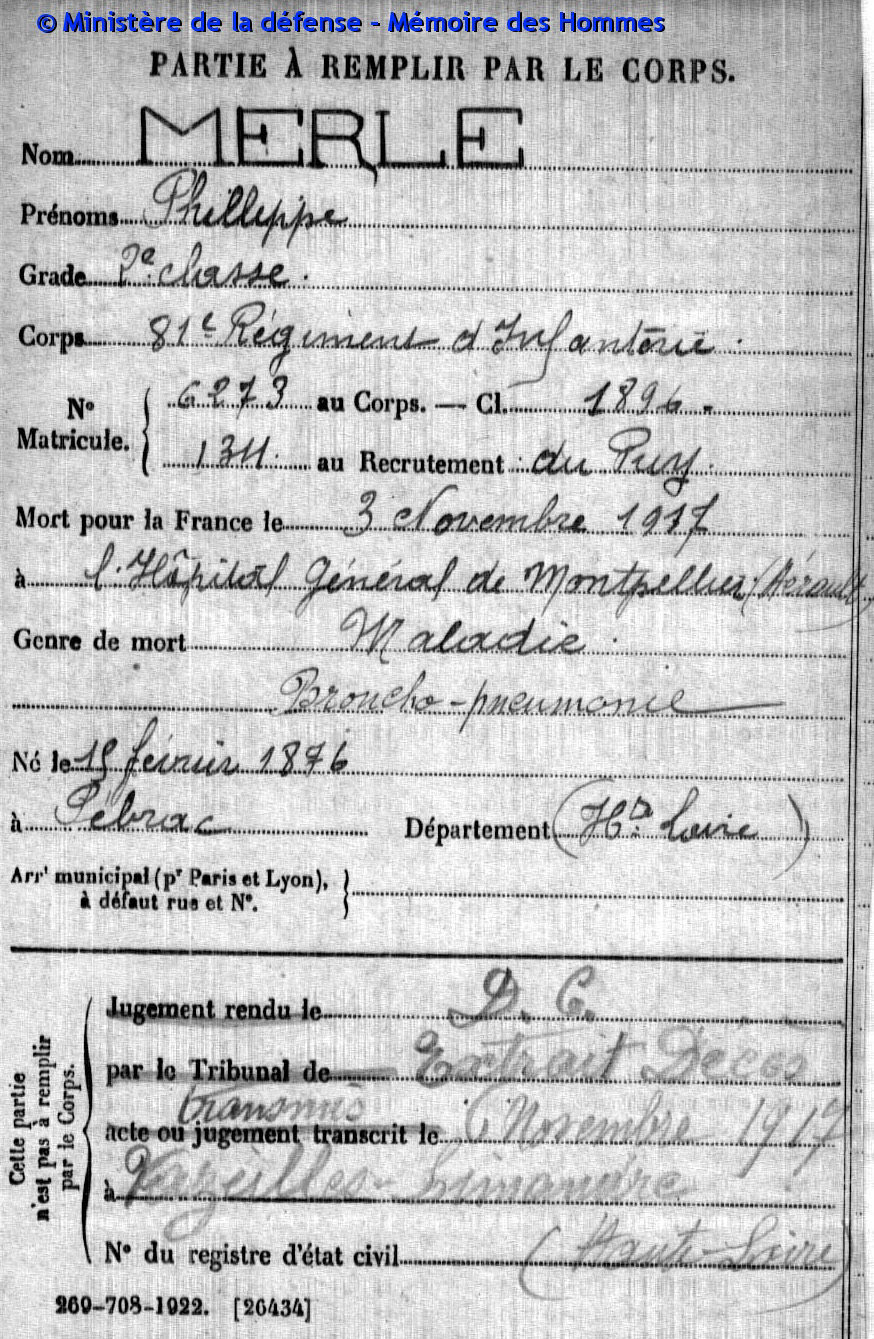 © Ministère de la défense - Mémoire des Hommes
PARTIE À REMPLIR PAR LE CORPS.
Nom MERLE
Prénoms Philleppe
Grade 2e classe.
Corps 81e Régiment d'Infanterie.
No Matricule. 6273 au Corps. — Cl. 1896.
1311. au Recrutement du Puy.
Mort pour la France le 3 Novembre 1917
à l'Hôpital Général de Montpellier (Hérault)
Genre de mort Maladie.
Broncho-pneumonie
Né le 15 février 1876
à Pébrac Département (Hte Loire)
Arrt municipal (pr Paris et Lyon),
à défaut rue et No.
Cette partie
n'est pas à remplir
par le Corps.
Jugement rendu le D. C.
par le Tribunal de Extrait Décès
transmis
acte ou jugement transcrit le Novembre 1917
à Vazeilles-Limandre
No du registre d'état civil (Haute-Loire)
269-708-1922. [26434]